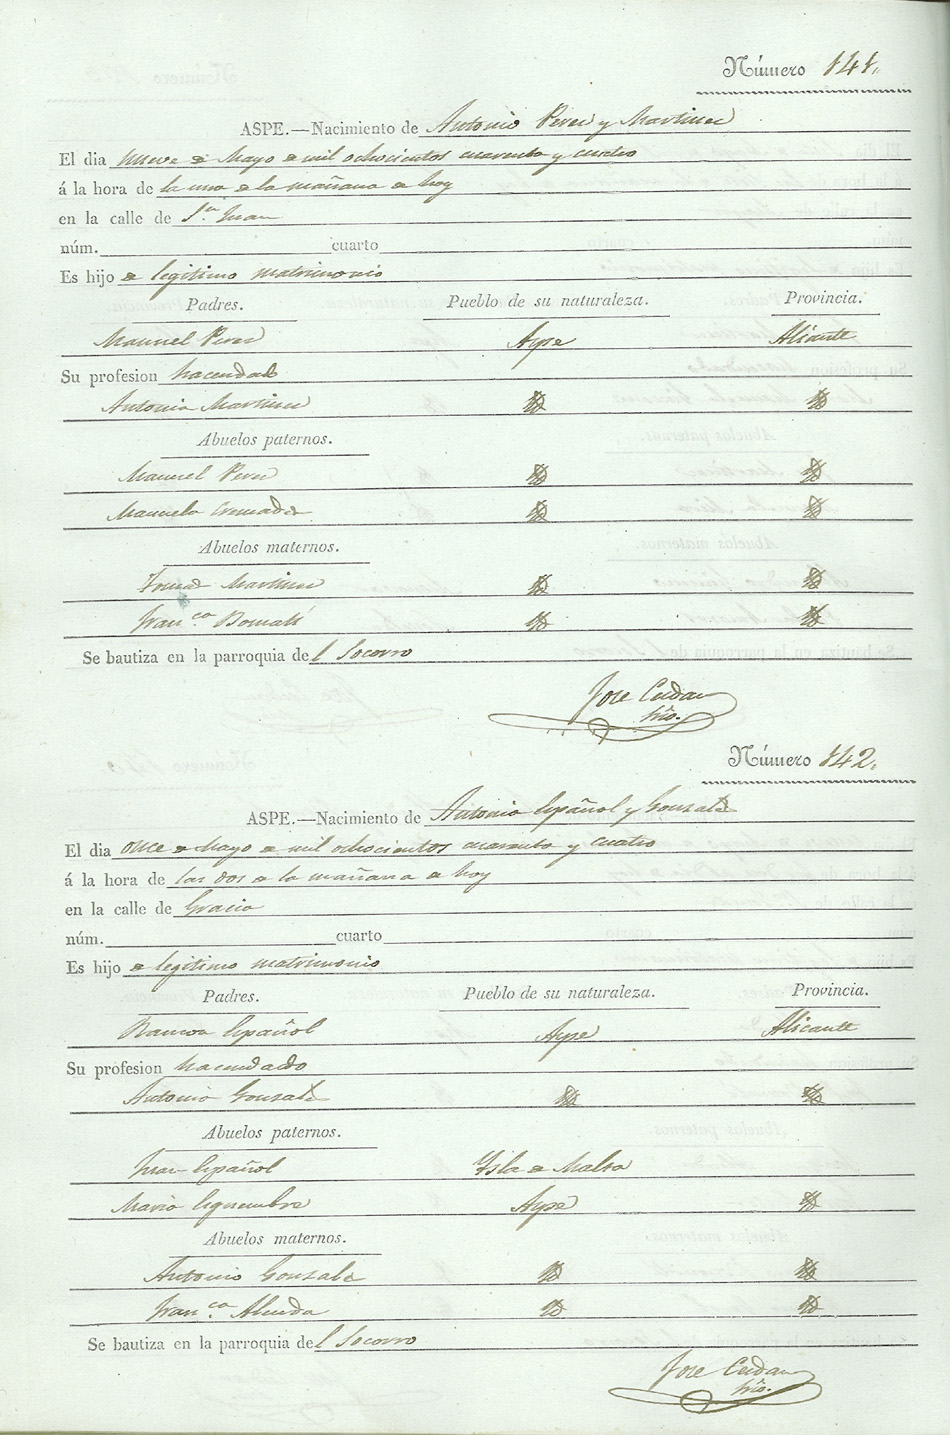 Número 141.
ASPE.—Nacimiento de Antonio Perez y Martinez
El dia nueve de Mayo de mil ochocientos cuarenta y cuatro
á la hora de la una de la mañana de hoy
en la calle de Sn. Juan
núm. cuarto
Es hijo de legitimo matrimonio
Padres. Pueblo de su naturaleza. Provincia.
Manuel Perez Aspe Alicante
Su profesion hacendado
Antonia Martinez
Abuelos paternos.
Manuel Perez
Manuela Cremades
Abuelos maternos.
Martinez
Franca.
Se bautiza en la parroquia del Socorro
Jose
Número 142.
ASPE.—Nacimiento de Antonio Español y Gonzalez
El dia once de Mayo de mil ochocientos cuarenta y cuatro
á la hora de las dos de la mañana de hoy
en la calle de Gracia
núm. cuarto
Es hijo de legitimo matrimonio
Padres. Pueblo de su naturaleza. Provincia.
Ramon Español Aspe Alicante
Su profesion hacendado
Antonia Gonzalez
Abuelos paternos.
Juan Español Isla de Malta
Maria Aspe
Abuelos maternos.
Antonio Gonzalez
Franca.
Se bautiza en la parroquia del Socorro
Jose